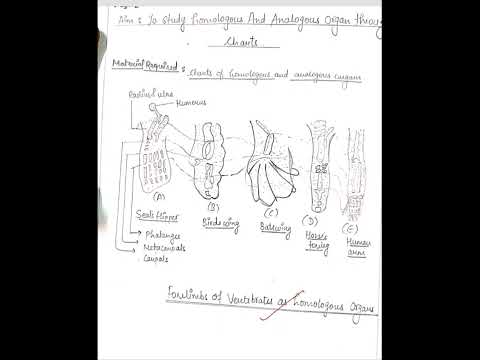 Aim : To study homologous And Analogous Organ through
Charts
Material Required : Charts of homologous and analogous organs
Radius/ulna
Humerus
(A)
(B)
(C)
(D)
(E)
Seal's flipper
Bird's wing
Bat's wing
Horse's
foreleg
Human
arm
Phalanges
Metacarpals
Carpals
Forelimbs of Vertebrates as homologous Organs